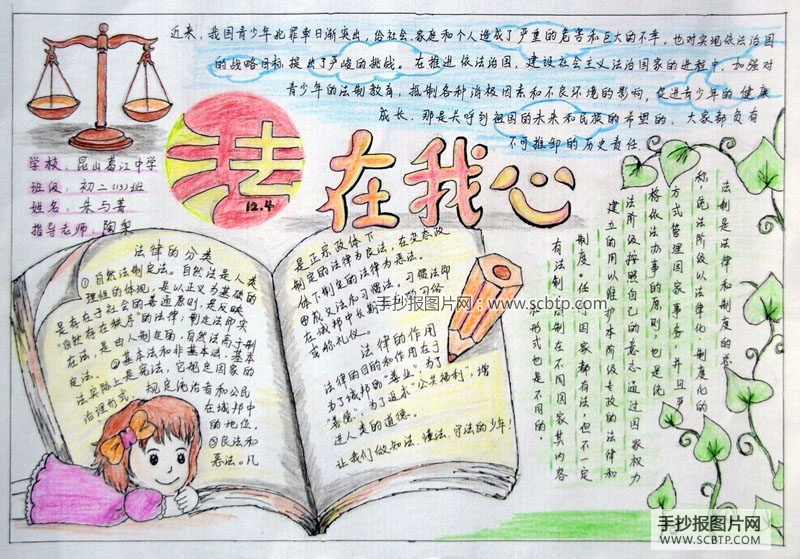 近来,我国青少年犯罪率日渐突出,给社会、家庭和个人造成了严重的危害和巨大的不幸,也对实现依法治国
的战略目标提出了严峻的挑战。在推进依法治国,建设社会主义法治国家的进程中,加强对
青少年的法制教育,抵制各种消极因素和不良环境的影响,促进青少年的健康
成长,那是关乎到祖国的未来和民族的希望的,大家都负有
不可推卸的历史责任
学校:昆山葛江中学
班级:初二(13)班
姓名:朱与菁
指导老师:陶梨
法在我心
12.4
法律的分类
①自然法制定法。自然法是人类
理性的体现,是以正义为基础的
是存在于社会的普通原则,是反映
"自然存在秩序"的法律,制定法即实
在法,是由人制定的,自然法高于制
定法。②基本法和非基本法,基本
法实际上是宪法,它规定国家的
治理形式,规定统治者和公民
在城邦中
的地位。
③良法和
恶法。凡
是正宗政体下
制定的法律为良法,在变态政
体下制定的法律为恶法。
④成文法和习惯法。习惯法即
在城邦中长期的习俗
常称礼仪。
法律的作用
法律的目的和作用在于
为了城邦的"善业",为了
"善德",为了追求"公共福利",增
进人类的道德。
让我们做知法、懂法、守法的少年!
法制是法律和制度的总
称,统治阶级以法律化、制度化的
方式管理国家事务,并且严
格依法办事的原则,也是统
治阶级按照自己的意志通过国家权力
建立的用以维护本阶级专政的法律和
制度。任何国家都有法,但不一定
有法制,法制在不同国家其内容
和形式也是不同的。
手抄报图片网:www.scbtp.com
手抄报图片网
WWW.SCBTP.COM